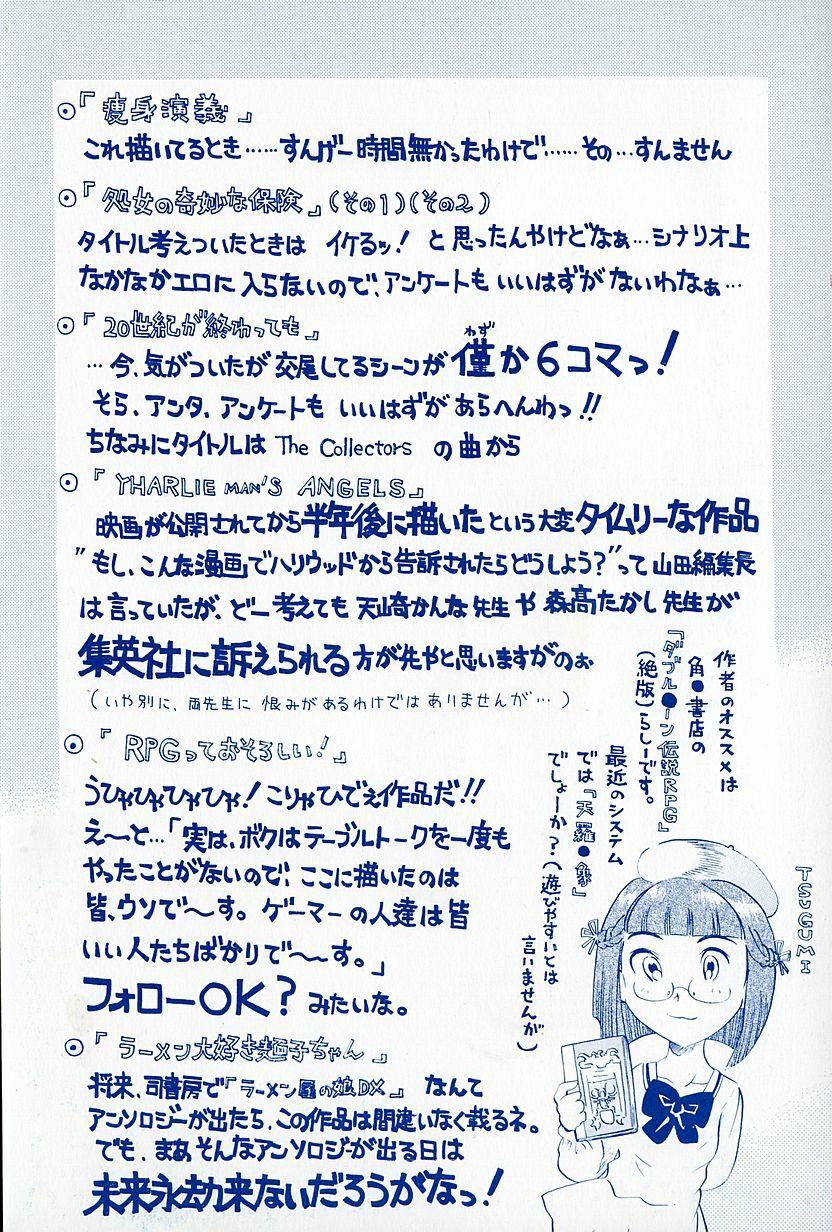 ◉『痩身演義』
これ描いてるとき……すんげー時間無かったわけで……その…すんません
◉『処女の奇妙な保険』(その1)(その2)
タイトル考えついたときは イケるッ! と思ったんやけどなぁ…シナリオ上
なかなかエロに入らないので、アンケートもいいはずがないわなぁ…
◉『20世紀が終わっても』
…今、気がついたが交尾してるシーンが僅か6コマっ!
わず
そら、アンタ、アンケートもいいはずがあらへんわっ!!
ちなみにタイトルは The Collectors の曲から
◉『YHARLIE MAN'S ANGELS』
映画が公開されてから半年後に描いたという大変タイムリーな作品
"もし、こんな漫画でハリウッドから告訴されたらどうしよう?"って山田編集長
は言っていたが、どー考えても天崎かんな先生や森高たかし先生が
集英社に訴えられる方が先やと思いますがのぉ
(いや別に、両先生に恨みがあるわけではありませんが…)
◉『RPGっておそろしい!』
うひゃひゃひゃひゃ!こりゃひでぇ作品だ!!
え〜と…「実は、ボクはテーブルトークを一度も
やったことがないので、ここに描いたのは
皆、ウソで〜す。ゲーマーの人達は皆
いい人たちばかりで〜〜す。」
フォローOK?みたいな。
◉『ラーメン大好き麺子ちゃん』
将来、司書房で『ラーメン屋の娘DX』なんて
アンソロジーが出たら、この作品は間違いなく載るネ。
でも、まぁそんなアンソロジーが出る日は
未来永劫来ないだろうがなっ!
作者のオススメは
角●書店の
『ダブル●ーン伝説RPG』
(絶版)らしーです。
最近のシステム
では「天羅●象」
でしょーか?(遊びやすいとは
言いませんが)
TSUGUMI